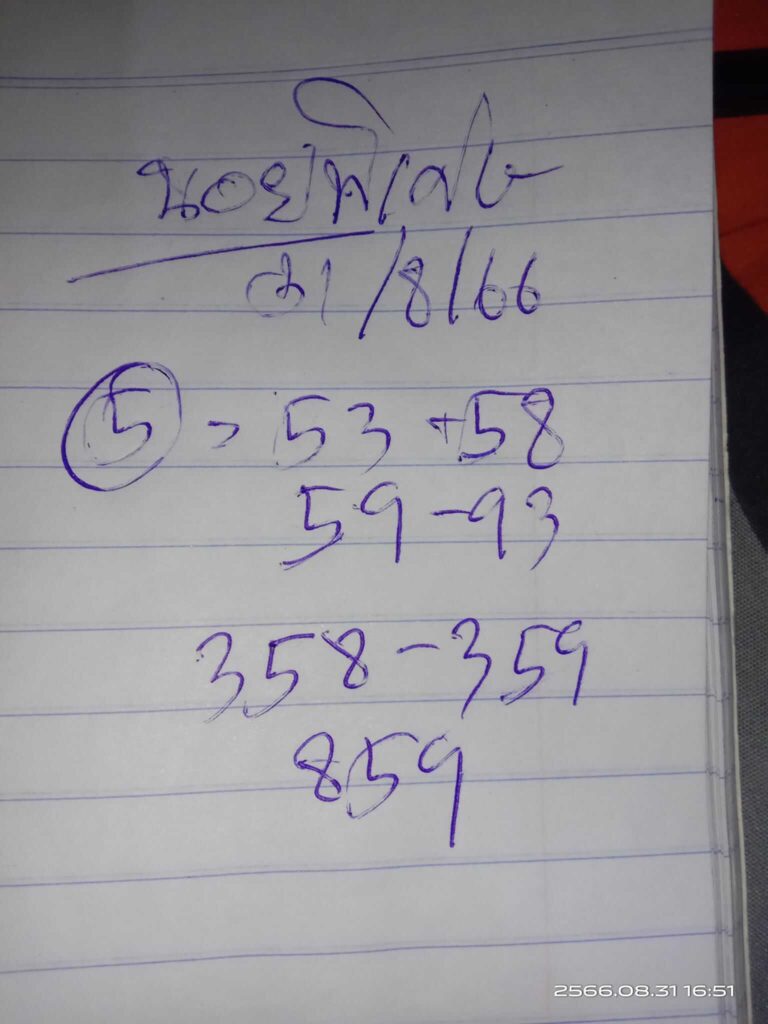 นอยพิเศษ
31/8/66
5 = 53 + 58
59 - 93
358 - 359
859
2566.08.31 16:51